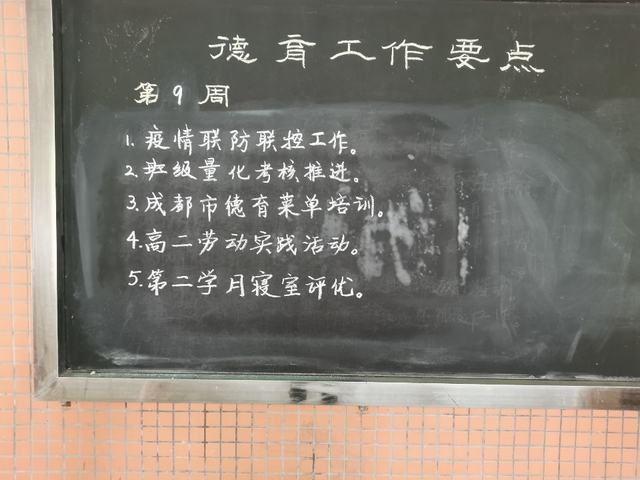 德育工作要点
第9周
1. 疫情联防联控工作。
2. 班级量化考核推进。
3. 成都市德育菜单培训。
4. 高二劳动实践活动。
5. 第二学月寝室评优。